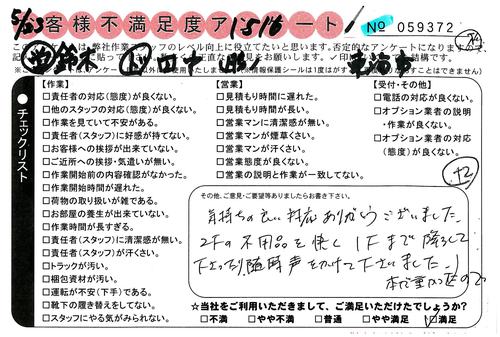 5/23 お客様不満足度アンケート 1516
No 059372
このアンケートは、弊社作業スタッフのレベル向上に役立てたいと思います。否定的なアンケートになりますので
鈴木 田口 北海市
【作業】
□責任者の対応(態度)が良くない。
□他のスタッフの対応(態度)が良くない。
□作業を見ていて不安がある。
□責任者(スタッフ)に好感が持てない。
□お客様への挨拶が出来ていない。
□ご近所への挨拶・気遣いが無い。
□作業開始前の内容確認がなかった。
□作業開始時間が遅れた。
□荷物の取り扱いが雑である。
□お部屋の養生が出来ていない。
□作業時間が長すぎる。
□責任者(スタッフ)に清潔感が無い。
□責任者(スタッフ)が汗くさい。
□トラックが汚い。
□梱包資材が汚い。
□運転が不安(下手)である。
□靴下の履き替えをしてない。
□スタッフにやる気がみられない。
チェックリスト
【営業】
□見積もり時間に遅れた。
□見積もり時間が長い。
□営業マンに清潔感が無い。
□営業マンが煙草くさい。
□営業マンが汗くさい。
□営業態度が良くない。
□営業の説明と作業が一致してない。
【受付・その他】
□電話の対応が良くない。
□オプション業者の説明
・作業が良くない。
□オプション業者の対応
(態度)が良くない。
+2
その他、ご意見・ご要望等ありましたらお書き下さい。
気持ちの良い対応ありがとうございました
2Fの不用品を快く1Fまで降ろして
下さったり随時声をかけて下さいました。
☆当社をご利用いただきまして、ご満足いただけたでしょうか?
□不満 □やや不満 □普通 □やや満足 ☑満足